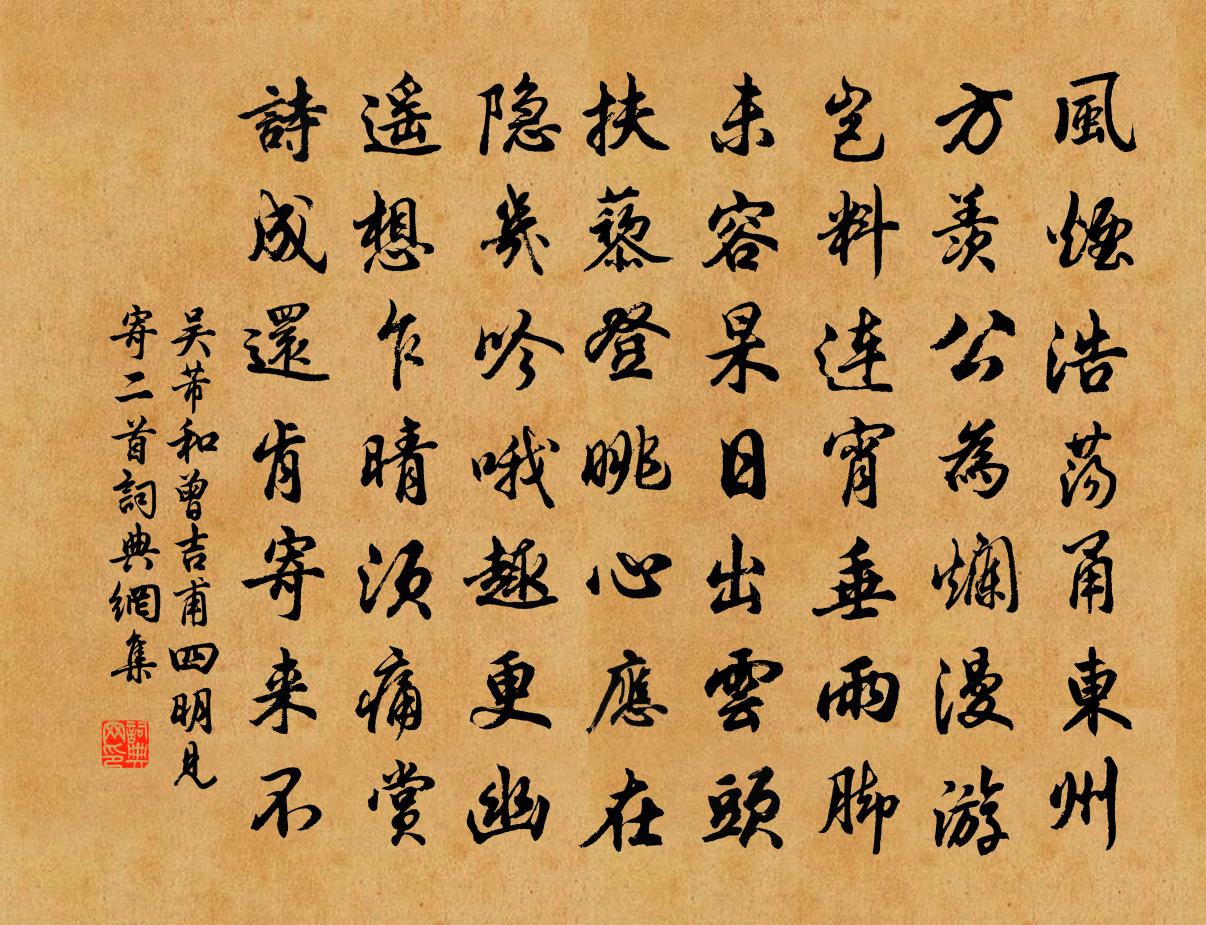 風煙浩蕩甬東州
方羨公為爛漫游
豈料連宵垂雨脚
未容杲日出雲頭
扶藜登眺心應在
隐几吟哦趣更幽
遥想乍晴須痛賞
詩成還肯寄来不
吴芾和曾吉甫四明見
寄二首詞典網集
詞典
网印